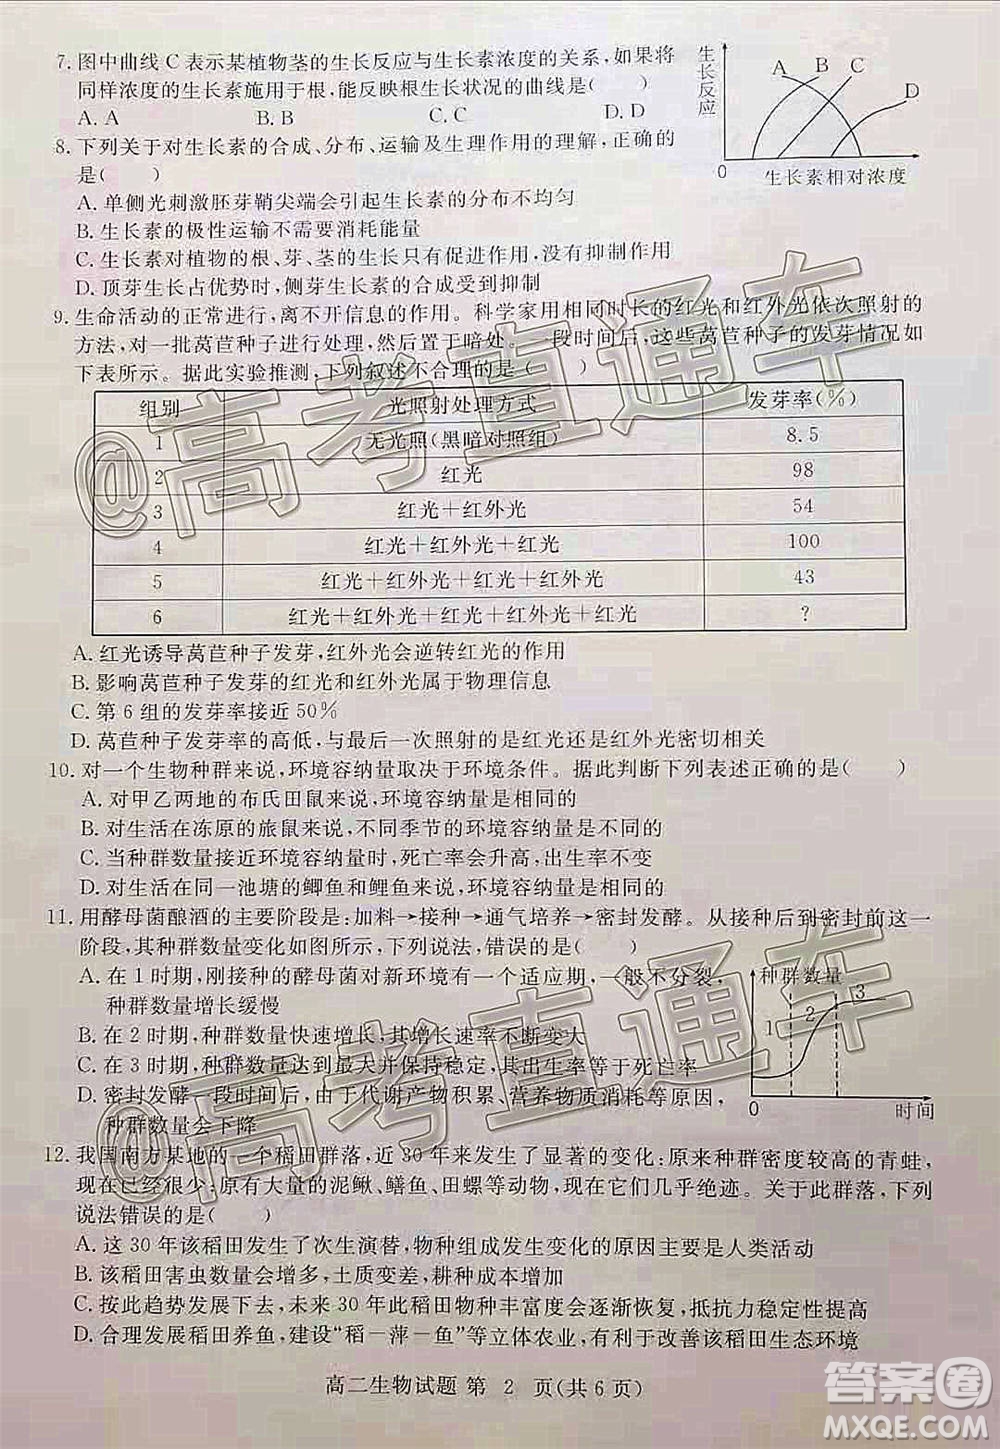 7. 图中曲线 C 表示某植物茎的生长反应与生长素浓度的关系,如果将
同样浓度的生长素施用于根,能反映根生长状况的曲线是(　　)
A. A　B. B　C. C　D. D
生长反应
A
B
C
D
0
生长素相对浓度
8. 下列关于对生长素的合成、分布、运输及生理作用的理解,正确的
是(　　)
A. 单侧光刺激胚芽鞘尖端会引起生长素的分布不均匀
B. 生长素的极性运输不需要消耗能量
C. 生长素对植物的根、芽、茎的生长只有促进作用,没有抑制作用
D. 顶芽生长占优势时,侧芽生长素的合成受到抑制
9. 生命活动的正常进行,离不开信息的作用。科学家用相同时长的红光和红外光依次照射的
方法,对一批莴苣种子进行处理,然后置于暗处。一段时间后,这些莴苣种子的发芽情况如
下表所示。据此实验推测,下列叙述不合理的是(　　)
组别　光照射处理方式　发芽率(%)
1　无光照(黑暗对照组)　8.5
2　红光　98
3　红光+红外光　54
4　红光+红外光+红光　100
5　红光+红外光+红光+红外光　43
6　红光+红外光+红光+红外光+红光　?
A. 红光诱导莴苣种子发芽,红外光会逆转红光的作用
B. 影响莴苣种子发芽的红光和红外光属于物理信息
C. 第 6 组的发芽率接近50%
D. 莴苣种子发芽率的高低,与最后一次照射的是红光还是红外光密切相关
10. 对一个生物种群来说,环境容纳量取决于环境条件。据此判断下列表述正确的是(　　)
A. 对甲乙两地的布氏田鼠来说,环境容纳量是相同的
B. 对生活在冻原的旅鼠来说,不同季节的环境容纳量是不同的
C. 当种群数量接近环境容纳量时,死亡率会升高,出生率不变
D. 对生活在同一池塘的鲫鱼和鲤鱼来说,环境容纳量是相同的
11. 用酵母菌酿酒的主要阶段是:加料→接种→通气培养→密封发酵。从接种后到密封前这一
阶段,其种群数量变化如图所示,下列说法,错误的是(　　)
A. 在 1 时期,刚接种的酵母菌对新环境有一个适应期,一般不分裂,
种群数量增长缓慢
B. 在 2 时期,种群数量快速增长,其增长速率不断变大
C. 在 3 时期,种群数量达到最大并保持稳定,其出生率等于死亡率
D. 密封发酵一段时间后,由于代谢产物积累、营养物质消耗等原因,
种群数量会下降
种群数量
1
2
3
0
时间
12. 我国南方某地的一个稻田群落,近 30 年来发生了显著的变化:原来种群密度较高的青蛙,
现在已经很少;原有大量的泥鳅、鳝鱼、田螺等,现在它们几乎绝迹。关于此群落,下列
说法错误的是(　　)
A. 这 30 年该稻田发生了次生演替,物种组成发生变化的原因主要是人类活动
B. 该稻田害虫数量会增多,土质变差,耕种成本增加
C. 按此趋势发展下去,未来 30 年该稻田物种丰富度会逐渐恢复,抵抗力稳定性提高
D. 合理发展稻田养鱼,建设“稻—萍—鱼”等立体农业,有利于改善该稻田生态环境
高二生物试题 第 2 页(共 6 页)
@高考直通车
@高考直通车
答案圈
MXQE.COM